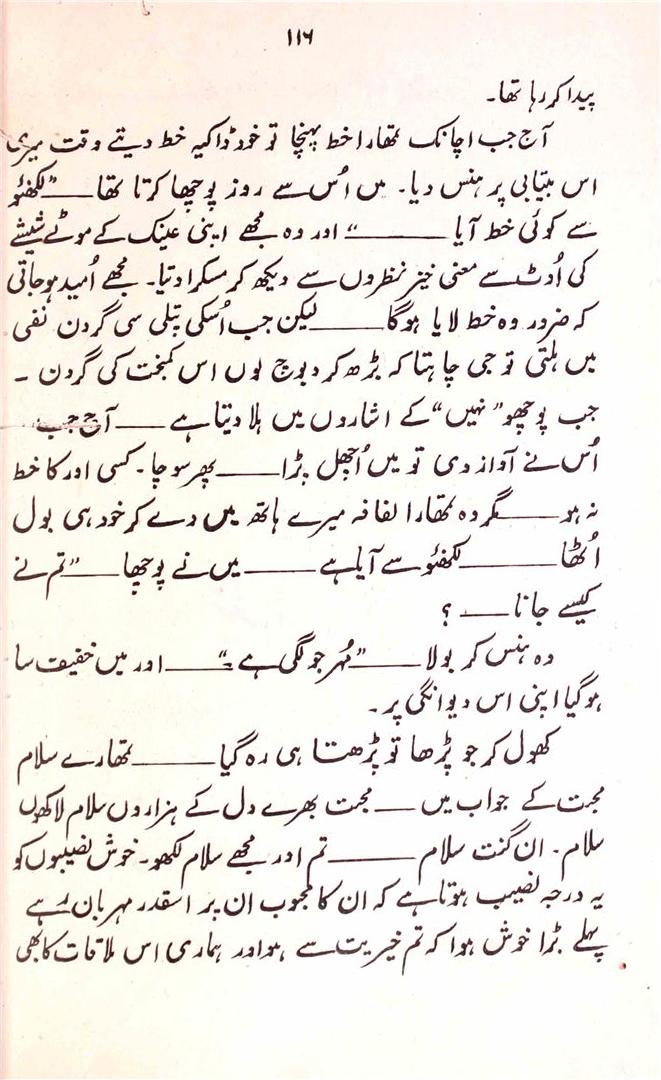 ۱۱۶
پیدا کر رہا تھا۔
آج جب اچانک تمھارا خط پہنچا تو خود ڈاکیہ خط دیتے وقت میری
اس بیتابی پر ہنس دیا۔ میں اُس سے روز پوچھا کرتا تھا ــــ ”لکھنؤ
سے کوئی خط آیا ــــــــ“ اور وہ مجھے اپنی عینک کے موٹے شیشے
کی اُوٹ سے معنی خیز نظروں سے دیکھ کر مسکرا دیتا۔ مجھے اُمید ہو جاتی
کہ ضرور وہ خط لایا ہوگا ــــــــ لیکن جب اُسکی پتلی سی گردن نفی
میں ہلتی تو جی چاہتا کہ بڑھ کر دبوچ لوں اس کمبخت کی گردن ۔
جب پوچھو ”نہیں“ کے اشاروں میں ہلا دیتا ہے ــــــ آج جب
اُس نے آواز دی تو میں اُچھل پڑا ــــــ پھر سوچا۔ کسی اور کا خط
نہ ہو ــــــ مگر وہ تمھارا لفافہ میرے ہاتھ میں دے کر خود ہی بول
اُٹھا ــــــــ لکھنؤ سے آیا ہے ــــــــ میں نے پوچھا ــــــ ”تم نے
کیسے جانا ــــ ؟
وہ ہنس کر بولا ــــــ ”مُہر جو لگی ہے ۔“ ــــــ اور میں خفیف سا
ہو گیا اپنی اس دیوانگی پر ۔
کھول کر جو پڑھا تو پڑھتا ہی رہ گیا ــــــــ تمھارے سلام
محبت کے جواب میں ــــــ محبت بھرے دل کے ہزاروں سلام لاکھوں
سلام ۔ ان گنت سلام ــــــــ تم اور مجھے سلام لکھو۔ خوش نصیبوں کو
یہ درجہ نصیب ہوتا ہے کہ ان کا محبوب ان پر اسقدر مہربان رہے
پہلے بڑا خوش ہوا کہ تم خیریت سے ہو اور ہماری اس ملاقات کا بھی